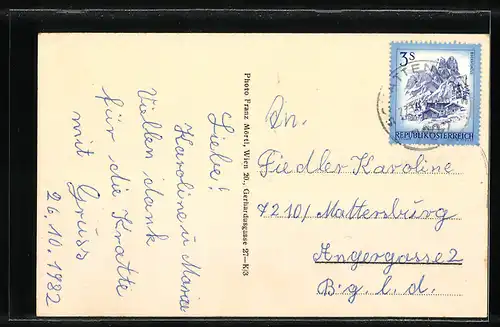 Liebe!
Karoline u Maria
Vielen dank
für die Kratte
mit Gruss
26.10.1982
Photo Franz Mörtl, Wien 20., Gerhardusgasse 27—K/3
3 S
REPUBLIK ÖSTERREICH
An.
Fiedler Karoline
7210/ Mattersburg
Angergasse 2
B.g.l.d.